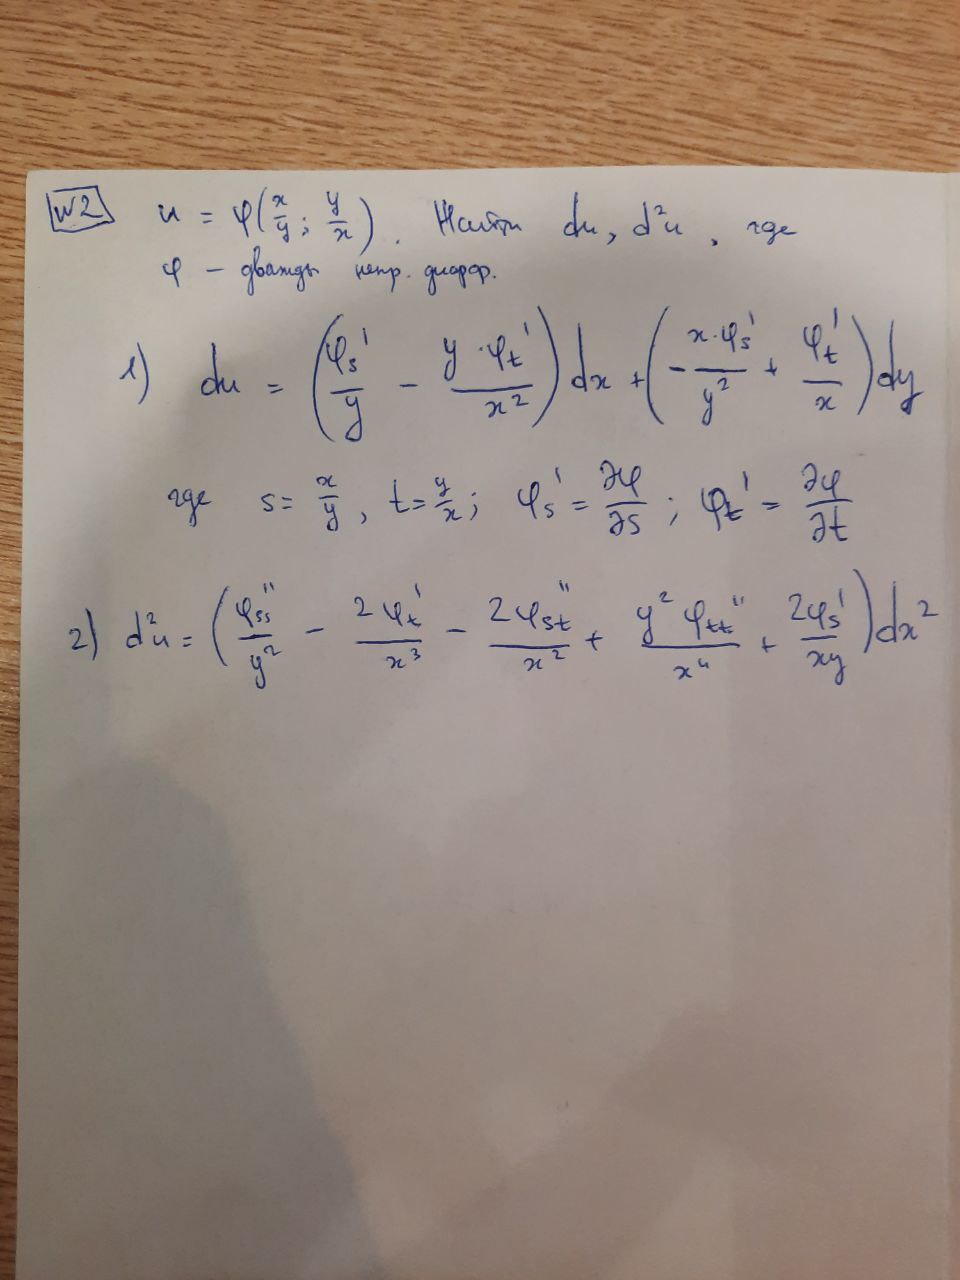 №2 u = φ(x/y; y/x). Найти du, d²u, где
φ – дважды непр. дифф.
1) du = (φs'/y − y·φt'/x²)dx + (−x·φs'/y² + φt'/x)dy
где s = x/y, t = y/x; φs' = ∂φ/∂s; φt' = ∂φ/∂t
2) d²u = (φss''/y² − 2φt'/x³ − 2φst''/x² + y²φtt''/x⁴ + 2φs'/xy)dx²